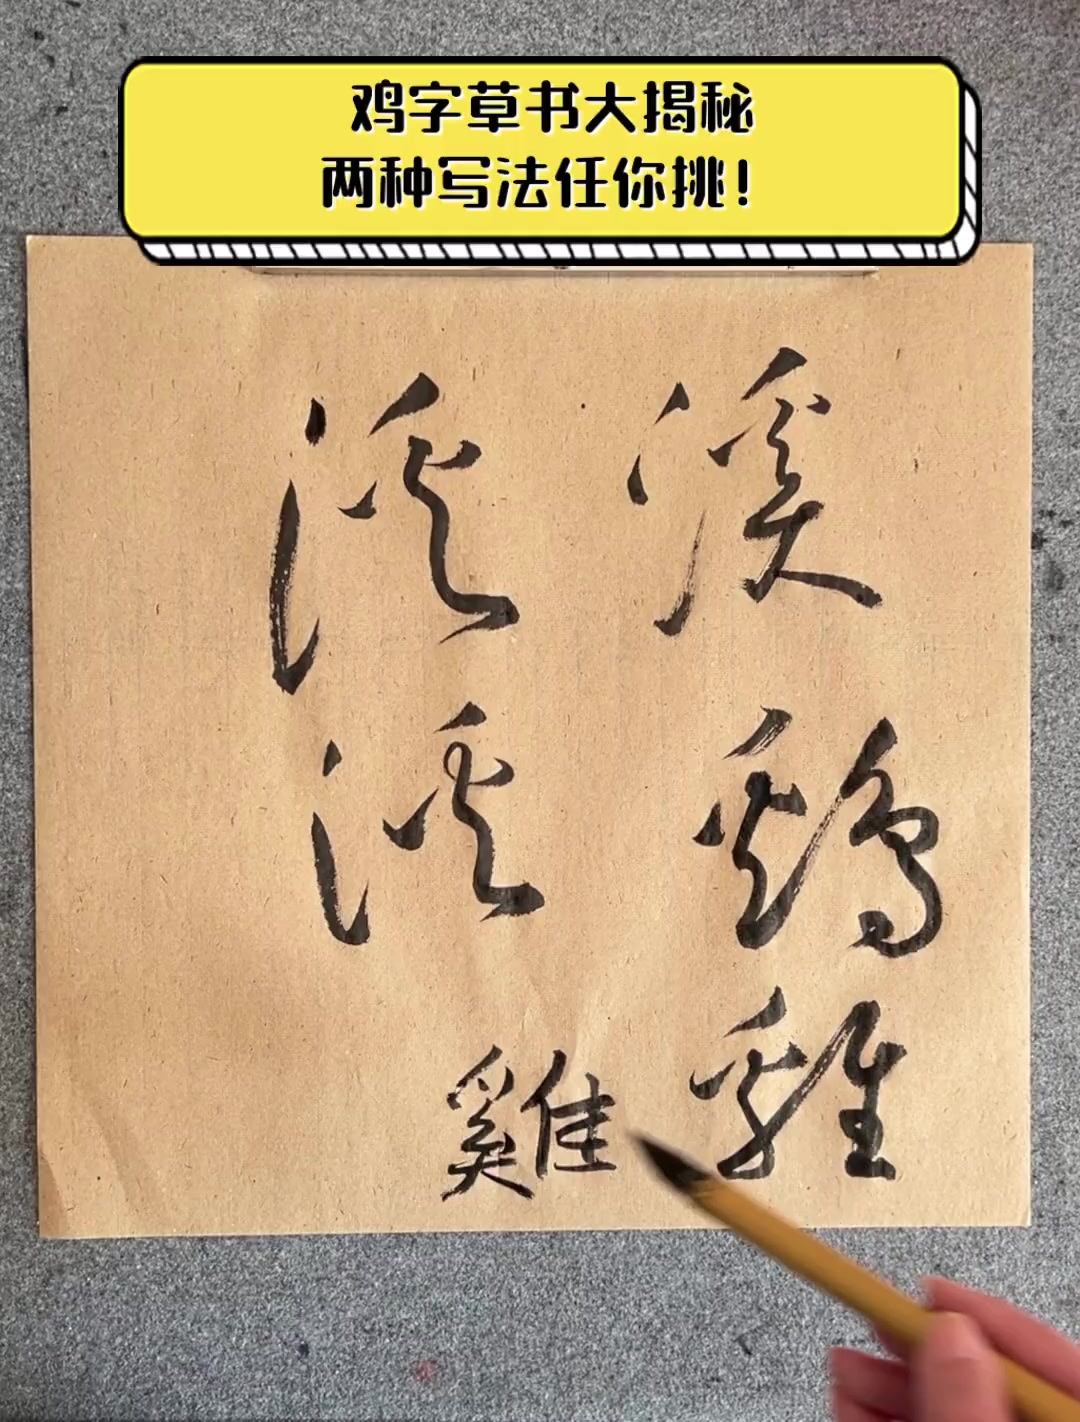 鸡字草书大揭秘
两种写法任你挑！
溪
鷄
雞
溪
溪
雞